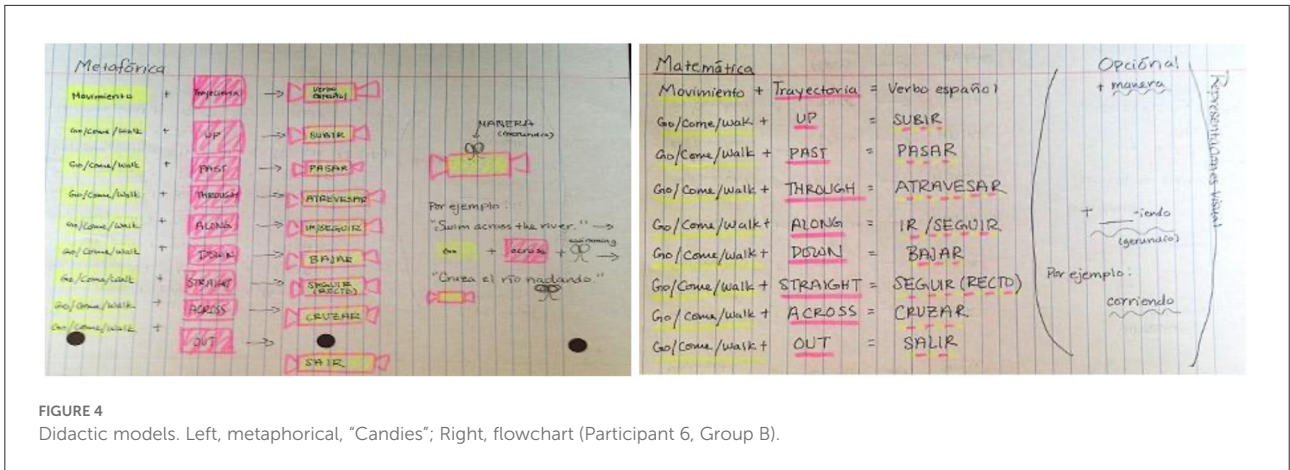 Metafórica
Movimiento + Trayectoria → Verbo español
Go/Come/Walk + UP → SUBIR
Go/Come/Walk + PAST → PASAR
Go/Come/Walk + THROUGH → ATREVESAR
Go/Come/Walk + ALONG → IR/SEGUIR
Go/Come/Walk + DOWN → BAJAR
Go/Come/Walk + STRAIGHT → SEGUIR (RECTO)
Go/Come/Walk + ACROSS → CRUZAR
Go/Come/Walk + OUT → SALIR
MANERA
(gerundio)
Por ejemplo:
"Swim across the river." →
+ across + swimming →
"Cruza el río nadando."
Matemática
Movimiento + Trayectoria = Verbo español
Go/Come/Walk + UP = SUBIR
Go/Come/Walk + PAST = PASAR
Go/Come/Walk + THROUGH = ATRAVESAR
Go/Come/Walk + ALONG = IR/SEGUIR
Go/Come/Walk + DOWN = BAJAR
Go/Come/Walk + STRAIGHT = SEGUIR (RECTO)
Go/Come/Walk + ACROSS = CRUZAR
Go/Come/Walk + OUT = SALIR
Opciónal
+ manera
+ ___-iendo
(gerundio)
Por ejemplo:
corriendo
Representaciones Visual
FIGURE 4
Didactic models. Left, metaphorical, "Candies"; Right, flowchart (Participant 6, Group B).